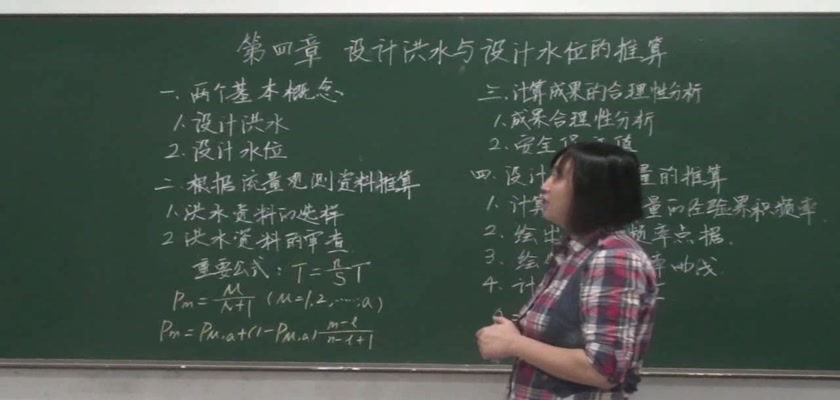 第四章 设计洪水与设计水位的推算
一.两个基本概念
1.设计洪水
2.设计水位
二.根据流量观测资料推算
1.洪水资料的选样
2 洪水资料的审查
重要公式: T=n/S T
Pm=M/(n+1) (M=1,2,……,a)
Pm=PM.a+(1-PM.a) (m-l)/(n-l+1)
三.计算成果的合理性分析
1.成果合理性分析
2.安全保 值
四.设计 量的推算
1.计算 量的经验累积频率
2.绘出 频率点据.
3.绘 率曲线
4.计